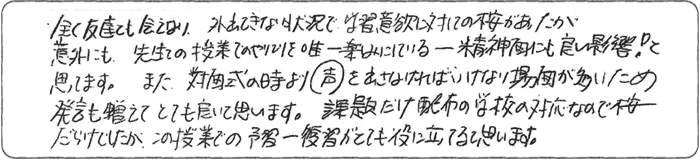 全く友達とも会えない、外出できない状況で学習意欲に対しての桜があったが
意外にも、先生の授業でのやりとりを唯一楽しみにしている―精神面にも良い影響！と
思ってます。また、対面式の時より声を出さなければいけない場面が多いため
発言も増えてとても良いと思います。課題だけ配布の学校の対応なので桜
だらけでしたが、この授業での予習―復習がとても役に立てると思います。